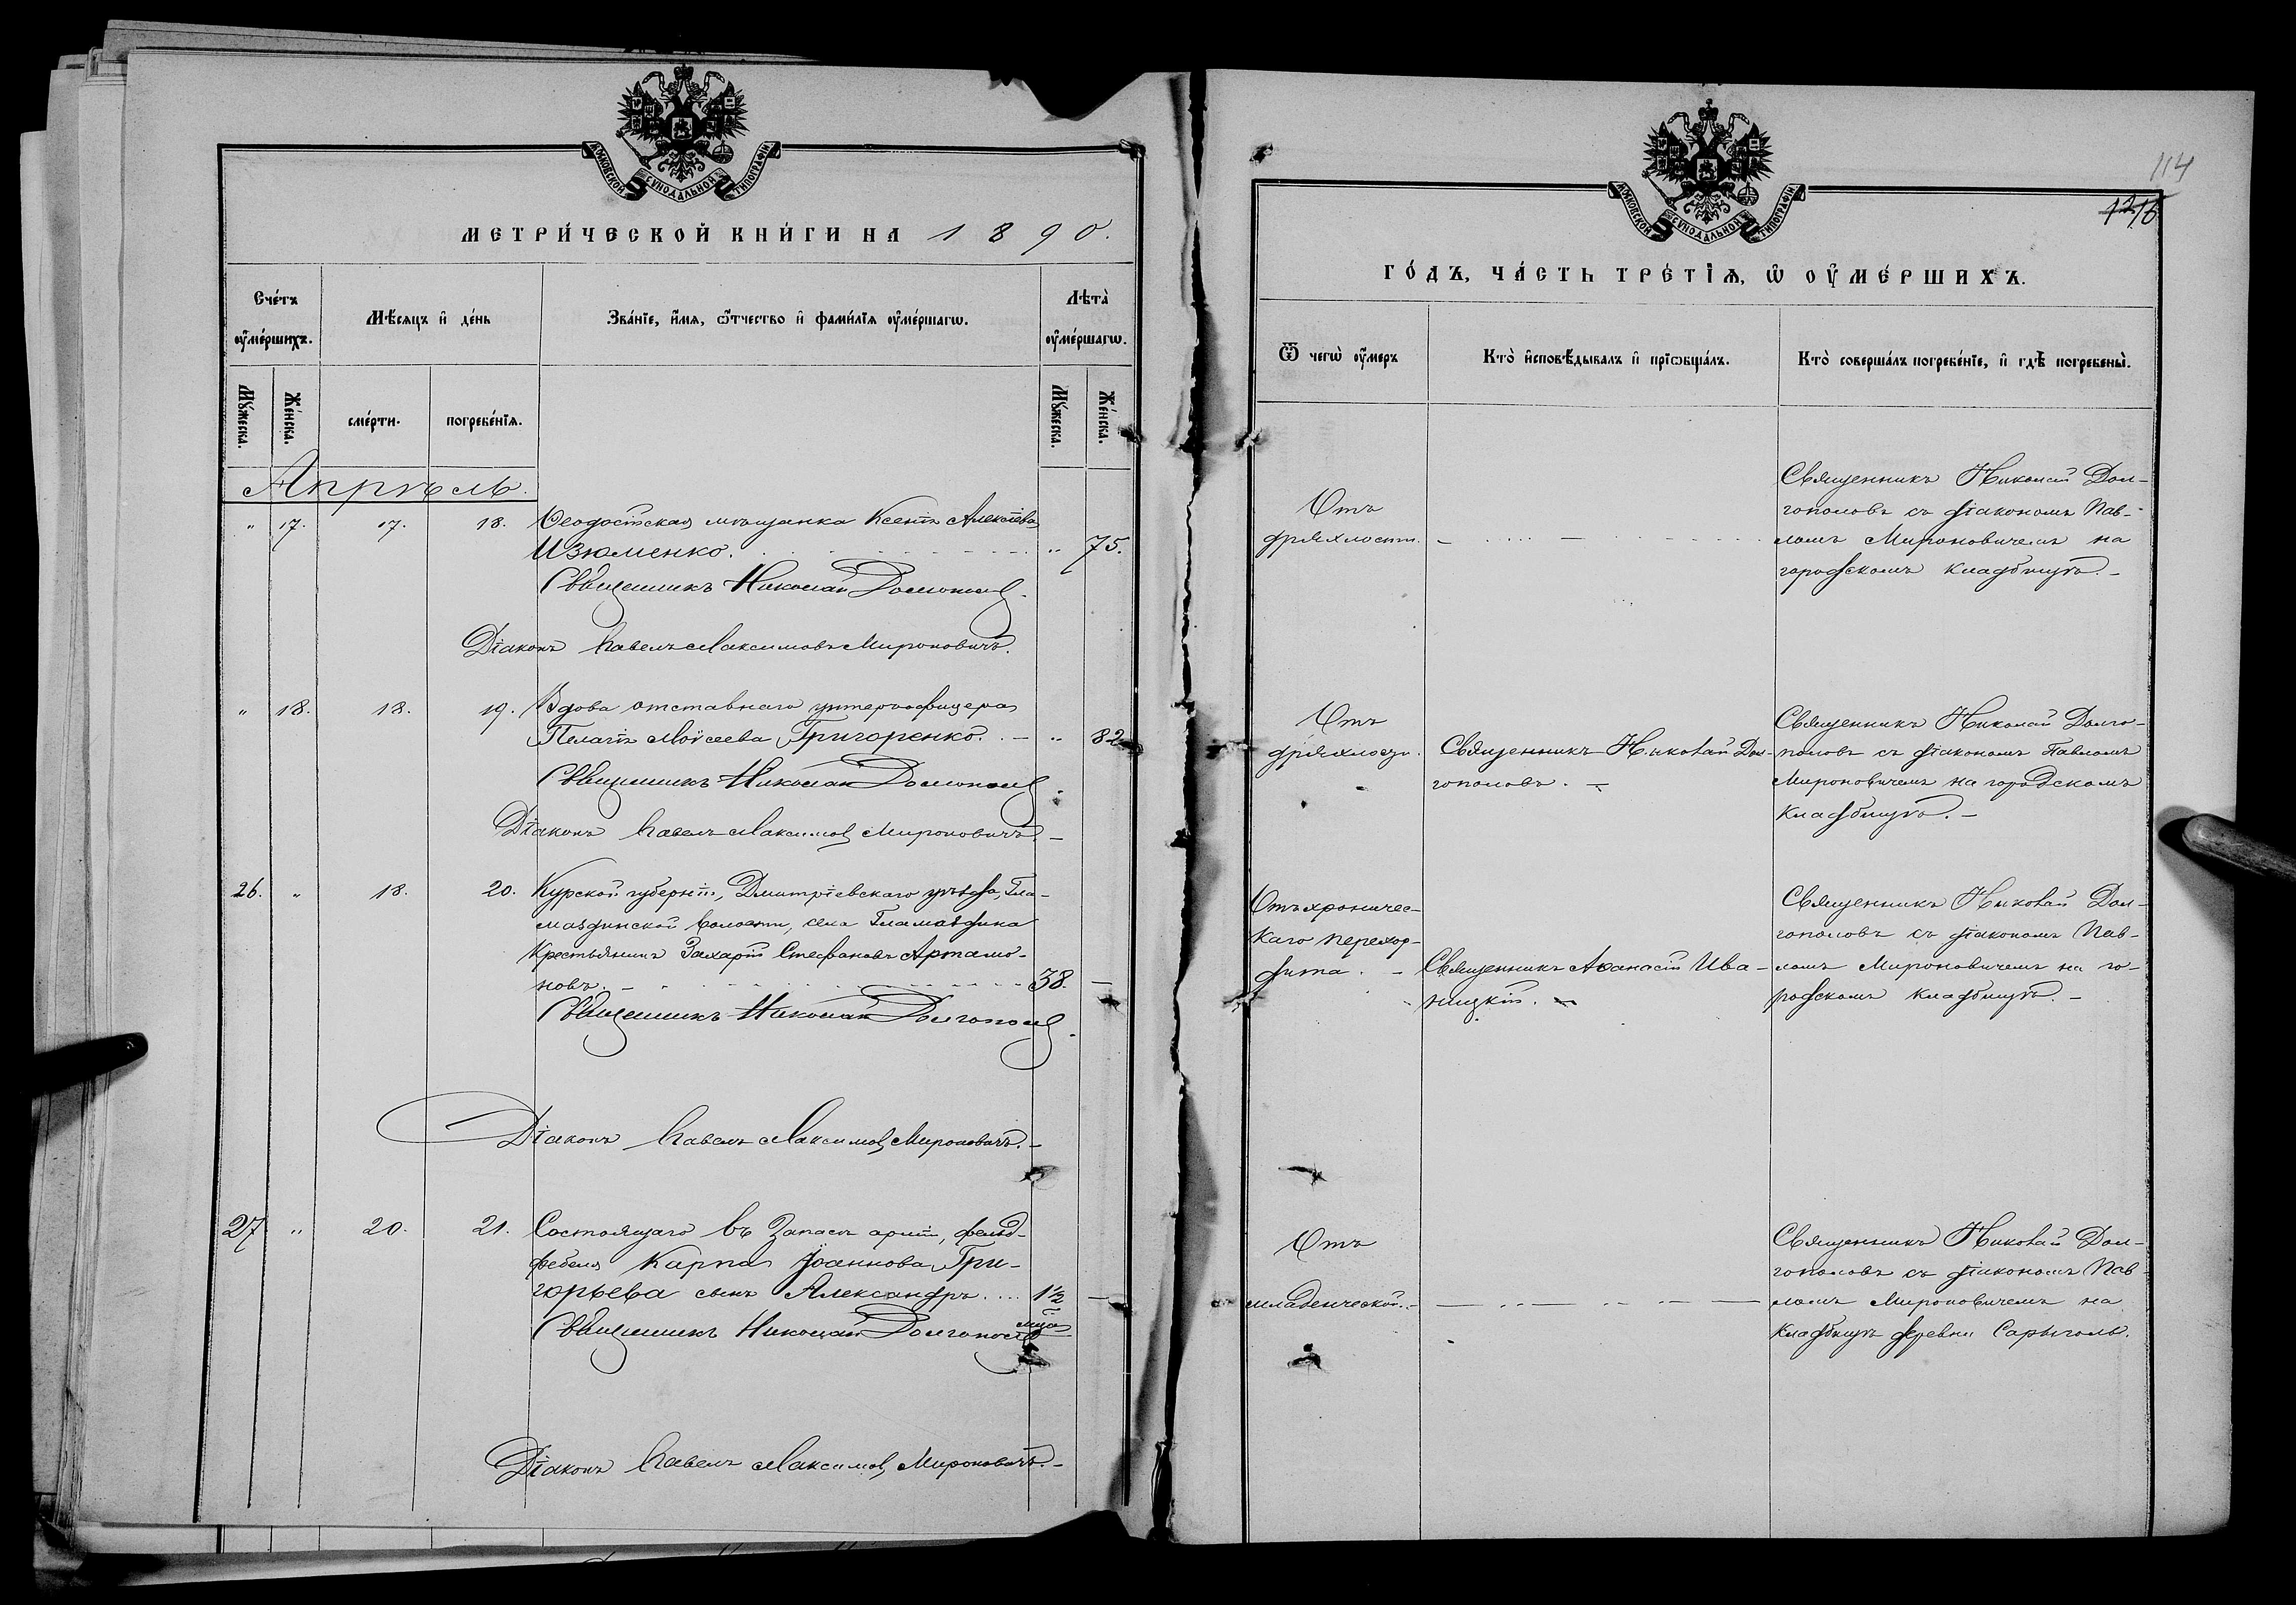 МОСКОВСКОЙ СУНОДАЛЬНОЙ ТИПОГРАФІИ
МЕТРИ́ЧЕСКОЙ КНИ́ГИ НА 1890.
Сче́тъ ᲂу҆ме́ршихъ.
Мѣ́сяцъ и҆ де́нь
Зва́нїе, и҆́мѧ, ѻ҆́тчество и҆ фами́лїѧ ᲂу҆ме́ршагѡ.
Лѣта̀ ᲂу҆ме́ршагѡ.
Му́жеска.
Же́нска.
сме́рти.
погребе́нїѧ.
Му́жеска.
Же́нска.
Апрѣль.
" 17. 17. 18. Ѳеодосійская мѣщанка Ксенія Алексѣева
Изюменко. " 75.
Священникъ Николай Долгополов
Діаконъ Павелъ Максимовъ Мироновичъ.
" 18. 18. 19. Вдова отставнаго унтеръ-офицера
Пелагія Моѵсеева Григоренко. " 82
Священникъ Николай Долгополов
Діаконъ Павелъ Максимов Мироновичъ.
26. " 18. 20. Курской губерніи, Дмитріевскаго уѣзда, Гла-
маздинской волости, села Гламаздина
Крестьянинъ Захарій Стефановъ Артамо-
новъ. 38. —
Священникъ Николай Долгополов
Діаконъ Павелъ Максимов Мироновичъ.
27 " 20. 21. Состоящаго въ Запасѣ арміи, фельд-
фебеля Карпа Іоаннова Гри-
горьева сынъ Александръ. 1½ —
мца
Священникъ Николай Долгополов
Діаконъ Павелъ Максимов Мироновичъ.
114
МОСКОВСКОЙ СУНОДАЛЬНОЙ ТИПОГРАФІИ
ГО́ДЪ, ЧА́СТЬ ТРЕ́ТЇѦ, Ѡ҆ ОУ҆МЕ́РШИХЪ.
Ѿ чегѡ̀ ᲂу҆́меръ
Кто̀ и҆сповѣ́дывалъ и҆ прїѡбща́лъ.
Кто̀ соверша́лъ погребе́нїе, и҆ гдѣ̀ погребены̀.
Отъ
дряхлости.
Священникъ Николай Дол-
гополовъ съ діакономъ Пав-
ломъ Мироновичемъ на
городскомъ кладбищѣ.
Отъ
дряхлости.
Священникъ Николай Дол-
гополовъ.
Священникъ Николай Долго-
половъ съ діакономъ Павломъ
Мироновичемъ на городскомъ
кладбищѣ.
Отъ хроничес-
каго перикар-
дита.
Священникъ Аѳанасій Ива-
ницкій.
Священникъ Николай Дол-
гополовъ съ діакономъ Пав-
ломъ Мироновичемъ на го-
родскомъ кладбищѣ.
Отъ
младенческой.
Священникъ Николай Дол-
гополовъ съ діакономъ Пав-
ломъ Мироновичемъ на
кладбищѣ деревни Сарыголь.